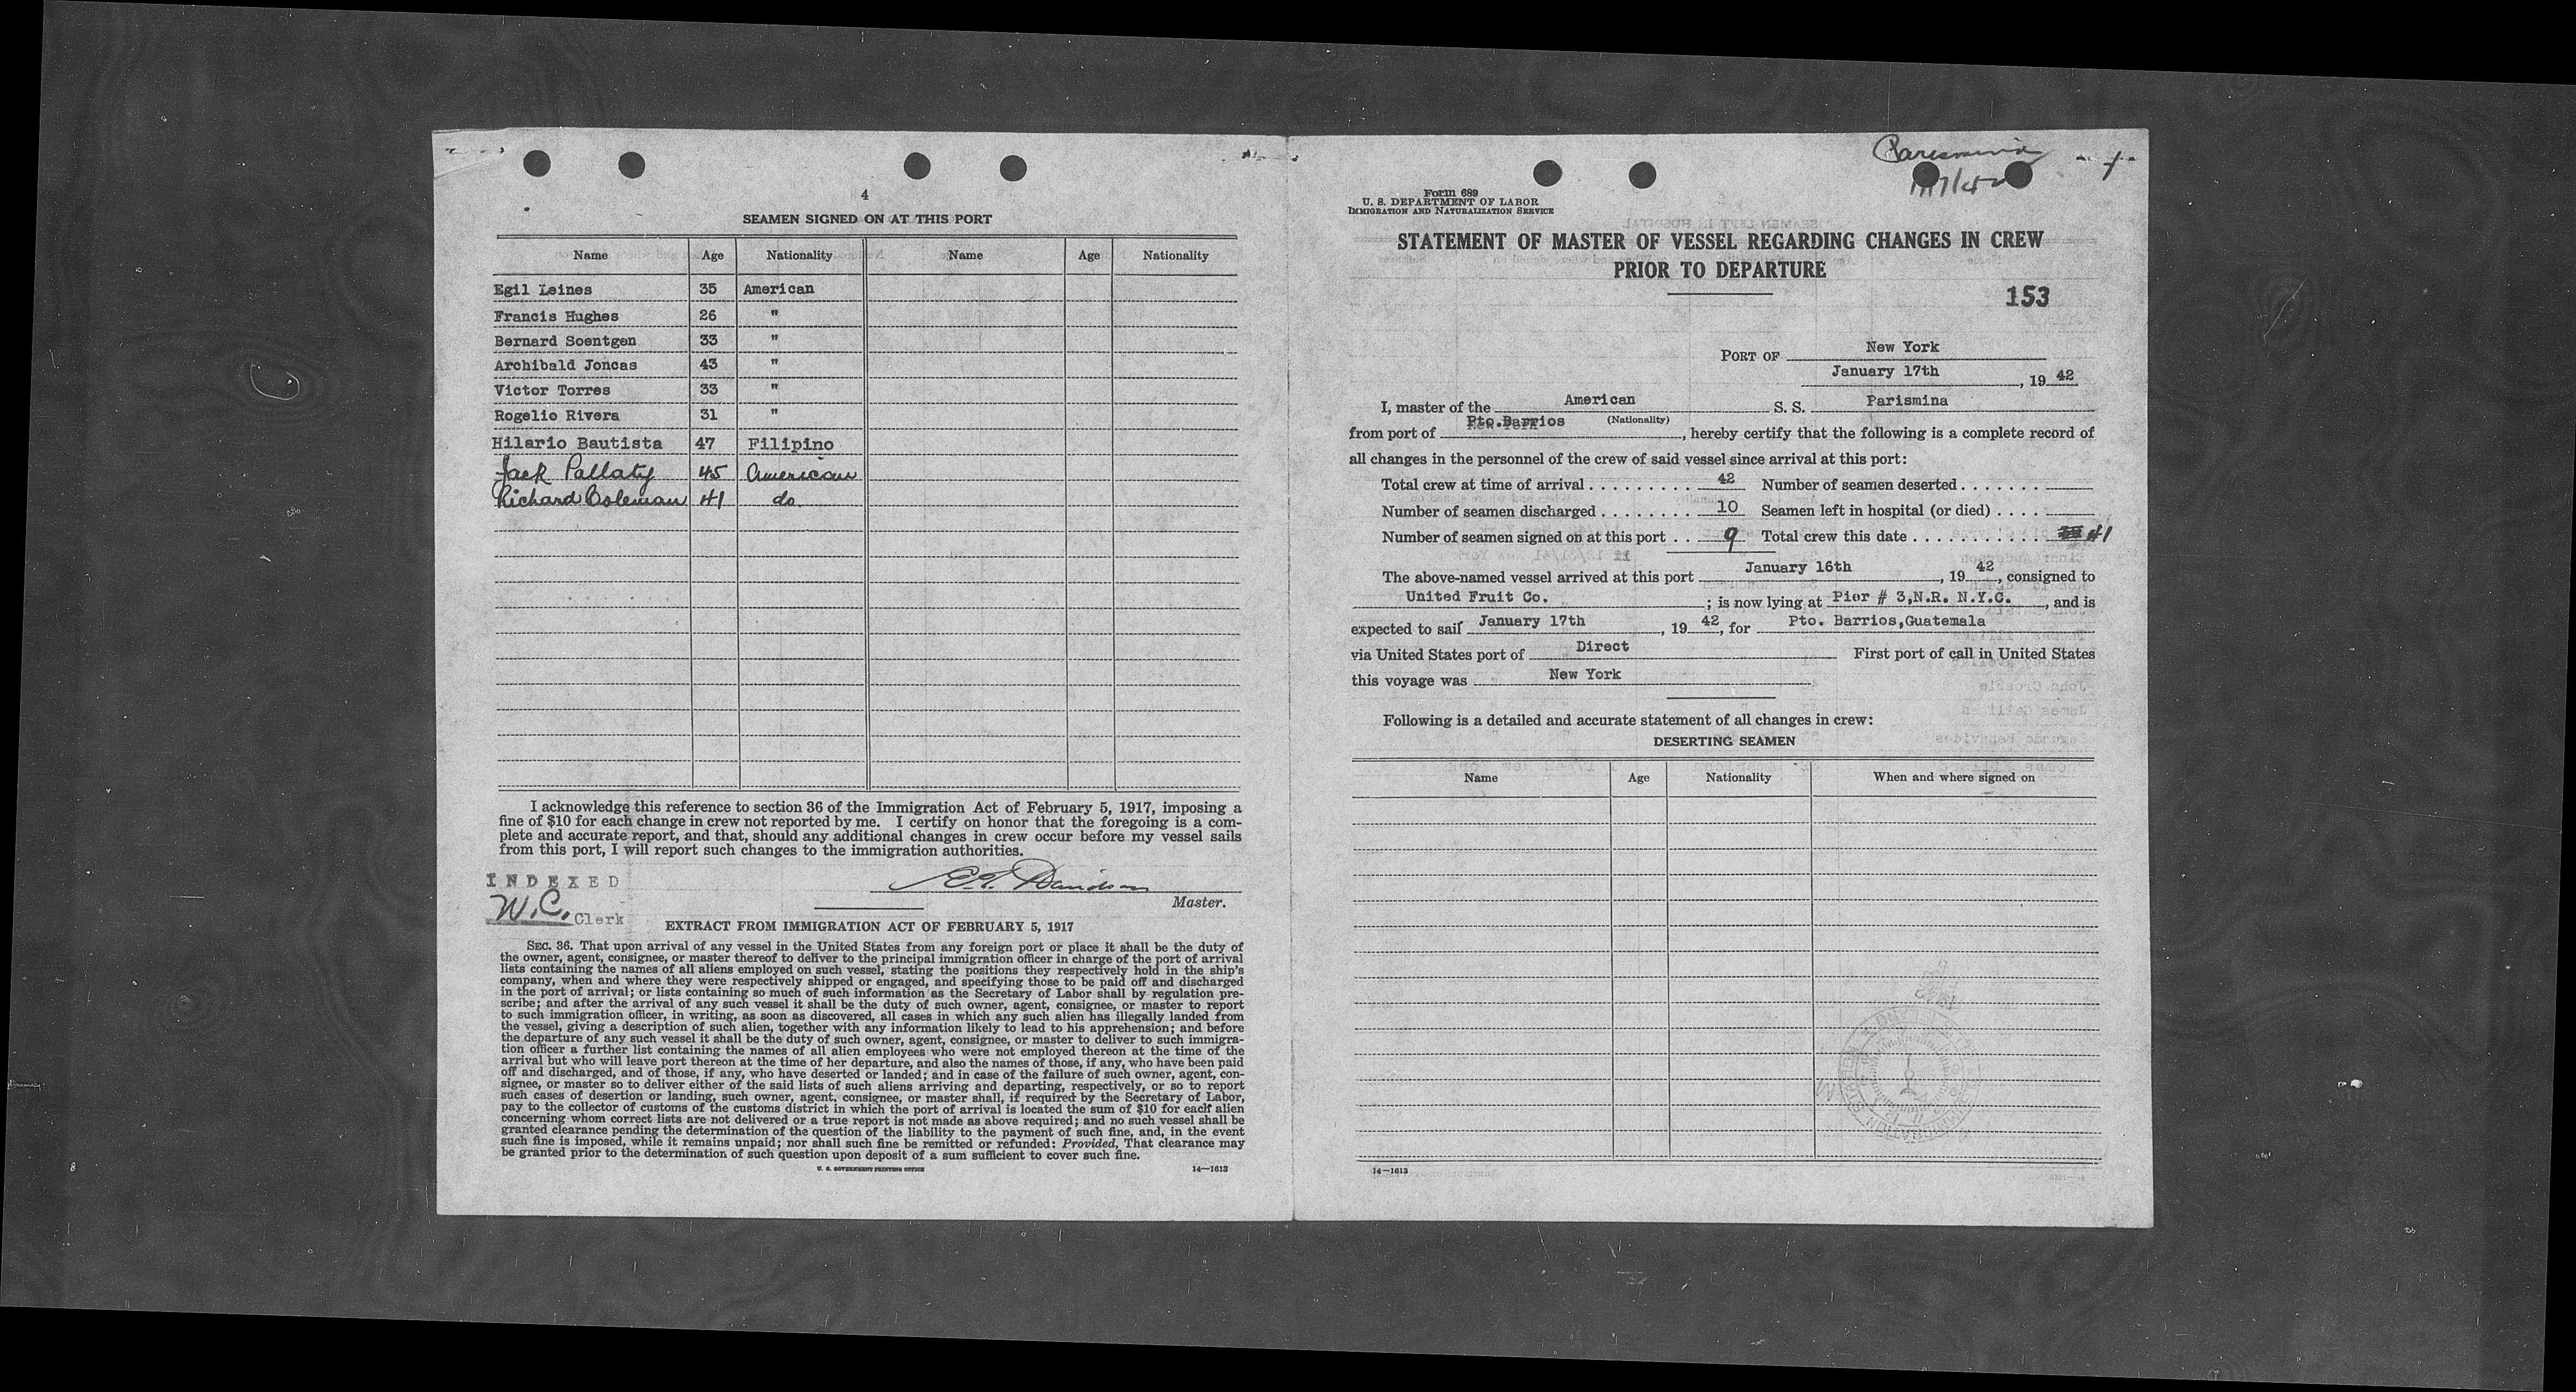 4
SEAMEN SIGNED ON AT THIS PORT
Name Age Nationality Name Age Nationality
Egil Leines 35 American
Francis Hughes 26 "
Bernard Soentgen 33 "
Archibald Joncas 43 "
Victor Torres 33 "
Rogelio Rivera 31 "
Hilario Bautista 47 Filipino
Jack Pallaty 45 American
Richard Coleman 41 do.
I acknowledge this reference to section 36 of the Immigration Act of February 5, 1917, imposing a
fine of $10 for each change in crew not reported by me. I certify on honor that the foregoing is a com-
plete and accurate report, and that, should any additional changes in crew occur before my vessel sails
from this port, I will report such changes to the immigration authorities.
INDEXED
W.C. Clerk
Davidson
Master.
EXTRACT FROM IMMIGRATION ACT OF FEBRUARY 5, 1917
SEC. 36. That upon arrival of any vessel in the United States from any foreign port or place it shall be the duty of
the owner, agent, consignee, or master thereof to deliver to the principal immigration officer in charge of the port of arrival
lists containing the names of all aliens employed on such vessel, stating the positions they respectively hold in the ship's
company, when and where they were respectively shipped or engaged, and specifying those to be paid off and discharged
in the port of arrival; or lists containing so much of such information as the Secretary of Labor shall by regulation pre-
scribe; and after the arrival of any such vessel it shall be the duty of such owner, agent, consignee, or master to report
to such immigration officer, in writing, as soon as discovered, all cases in which any such alien has illegally landed from
the vessel, giving a description of such alien, together with any information likely to lead to his apprehension; and before
the departure of any such vessel it shall be the duty of such owner, agent, consignee, or master to deliver to such immigra-
tion officer a further list containing the names of all alien employees who were not employed thereon at the time of the
arrival but who will leave port thereon at the time of her departure, and also the names of those, if any, who have been paid
off and discharged, and of those, if any, who have deserted or landed; and in case of the failure of such owner, agent, con-
signee, or master so to deliver either of the said lists of such aliens arriving and departing, respectively, or so to report
such cases of desertion or landing, such owner, agent, consignee, or master shall, if required by the Secretary of Labor,
pay to the collector of customs of the customs district in which the port of arrival is located the sum of $10 for each alien
concerning whom correct lists are not delivered or a true report is not made as above required; and no such vessel shall be
granted clearance pending the determination of the question of the liability to the payment of such fine, and, in the event
such fine is imposed, while it remains unpaid; nor shall such fine be remitted or refunded: Provided, That clearance may
be granted prior to the determination of such question upon deposit of a sum sufficient to cover such fine.
U. S. GOVERNMENT PRINTING OFFICE 14—1613
Parismina
Form 689
U. S. DEPARTMENT OF LABOR
IMMIGRATION AND NATURALIZATION SERVICE
STATEMENT OF MASTER OF VESSEL REGARDING CHANGES IN CREW
PRIOR TO DEPARTURE
153
PORT OF New York
January 17th, 19 42
I, master of the American S. S. Parismina
(Nationality)
from port of Pto.Barrios, hereby certify that the following is a complete record of
all changes in the personnel of the crew of said vessel since arrival at this port:
Total crew at time of arrival . . . . . . . . . 42 Number of seamen deserted . . . . . . .
Number of seamen discharged . . . . . . . . 10 Seamen left in hospital (or died) . . . .
Number of seamen signed on at this port . . 9 Total crew this date . . . . . . . . . . . 41
The above-named vessel arrived at this port January 16th, 19 42, consigned to
United Fruit Co. ; is now lying at Pier # 3,N.R. N.Y.C., and is
expected to sail January 17th, 19 42, for Pto. Barrios,Guatemala
via United States port of Direct First port of call in United States
this voyage was New York
Following is a detailed and accurate statement of all changes in crew:
DESERTING SEAMEN
Name Age Nationality When and where signed on
14—1613